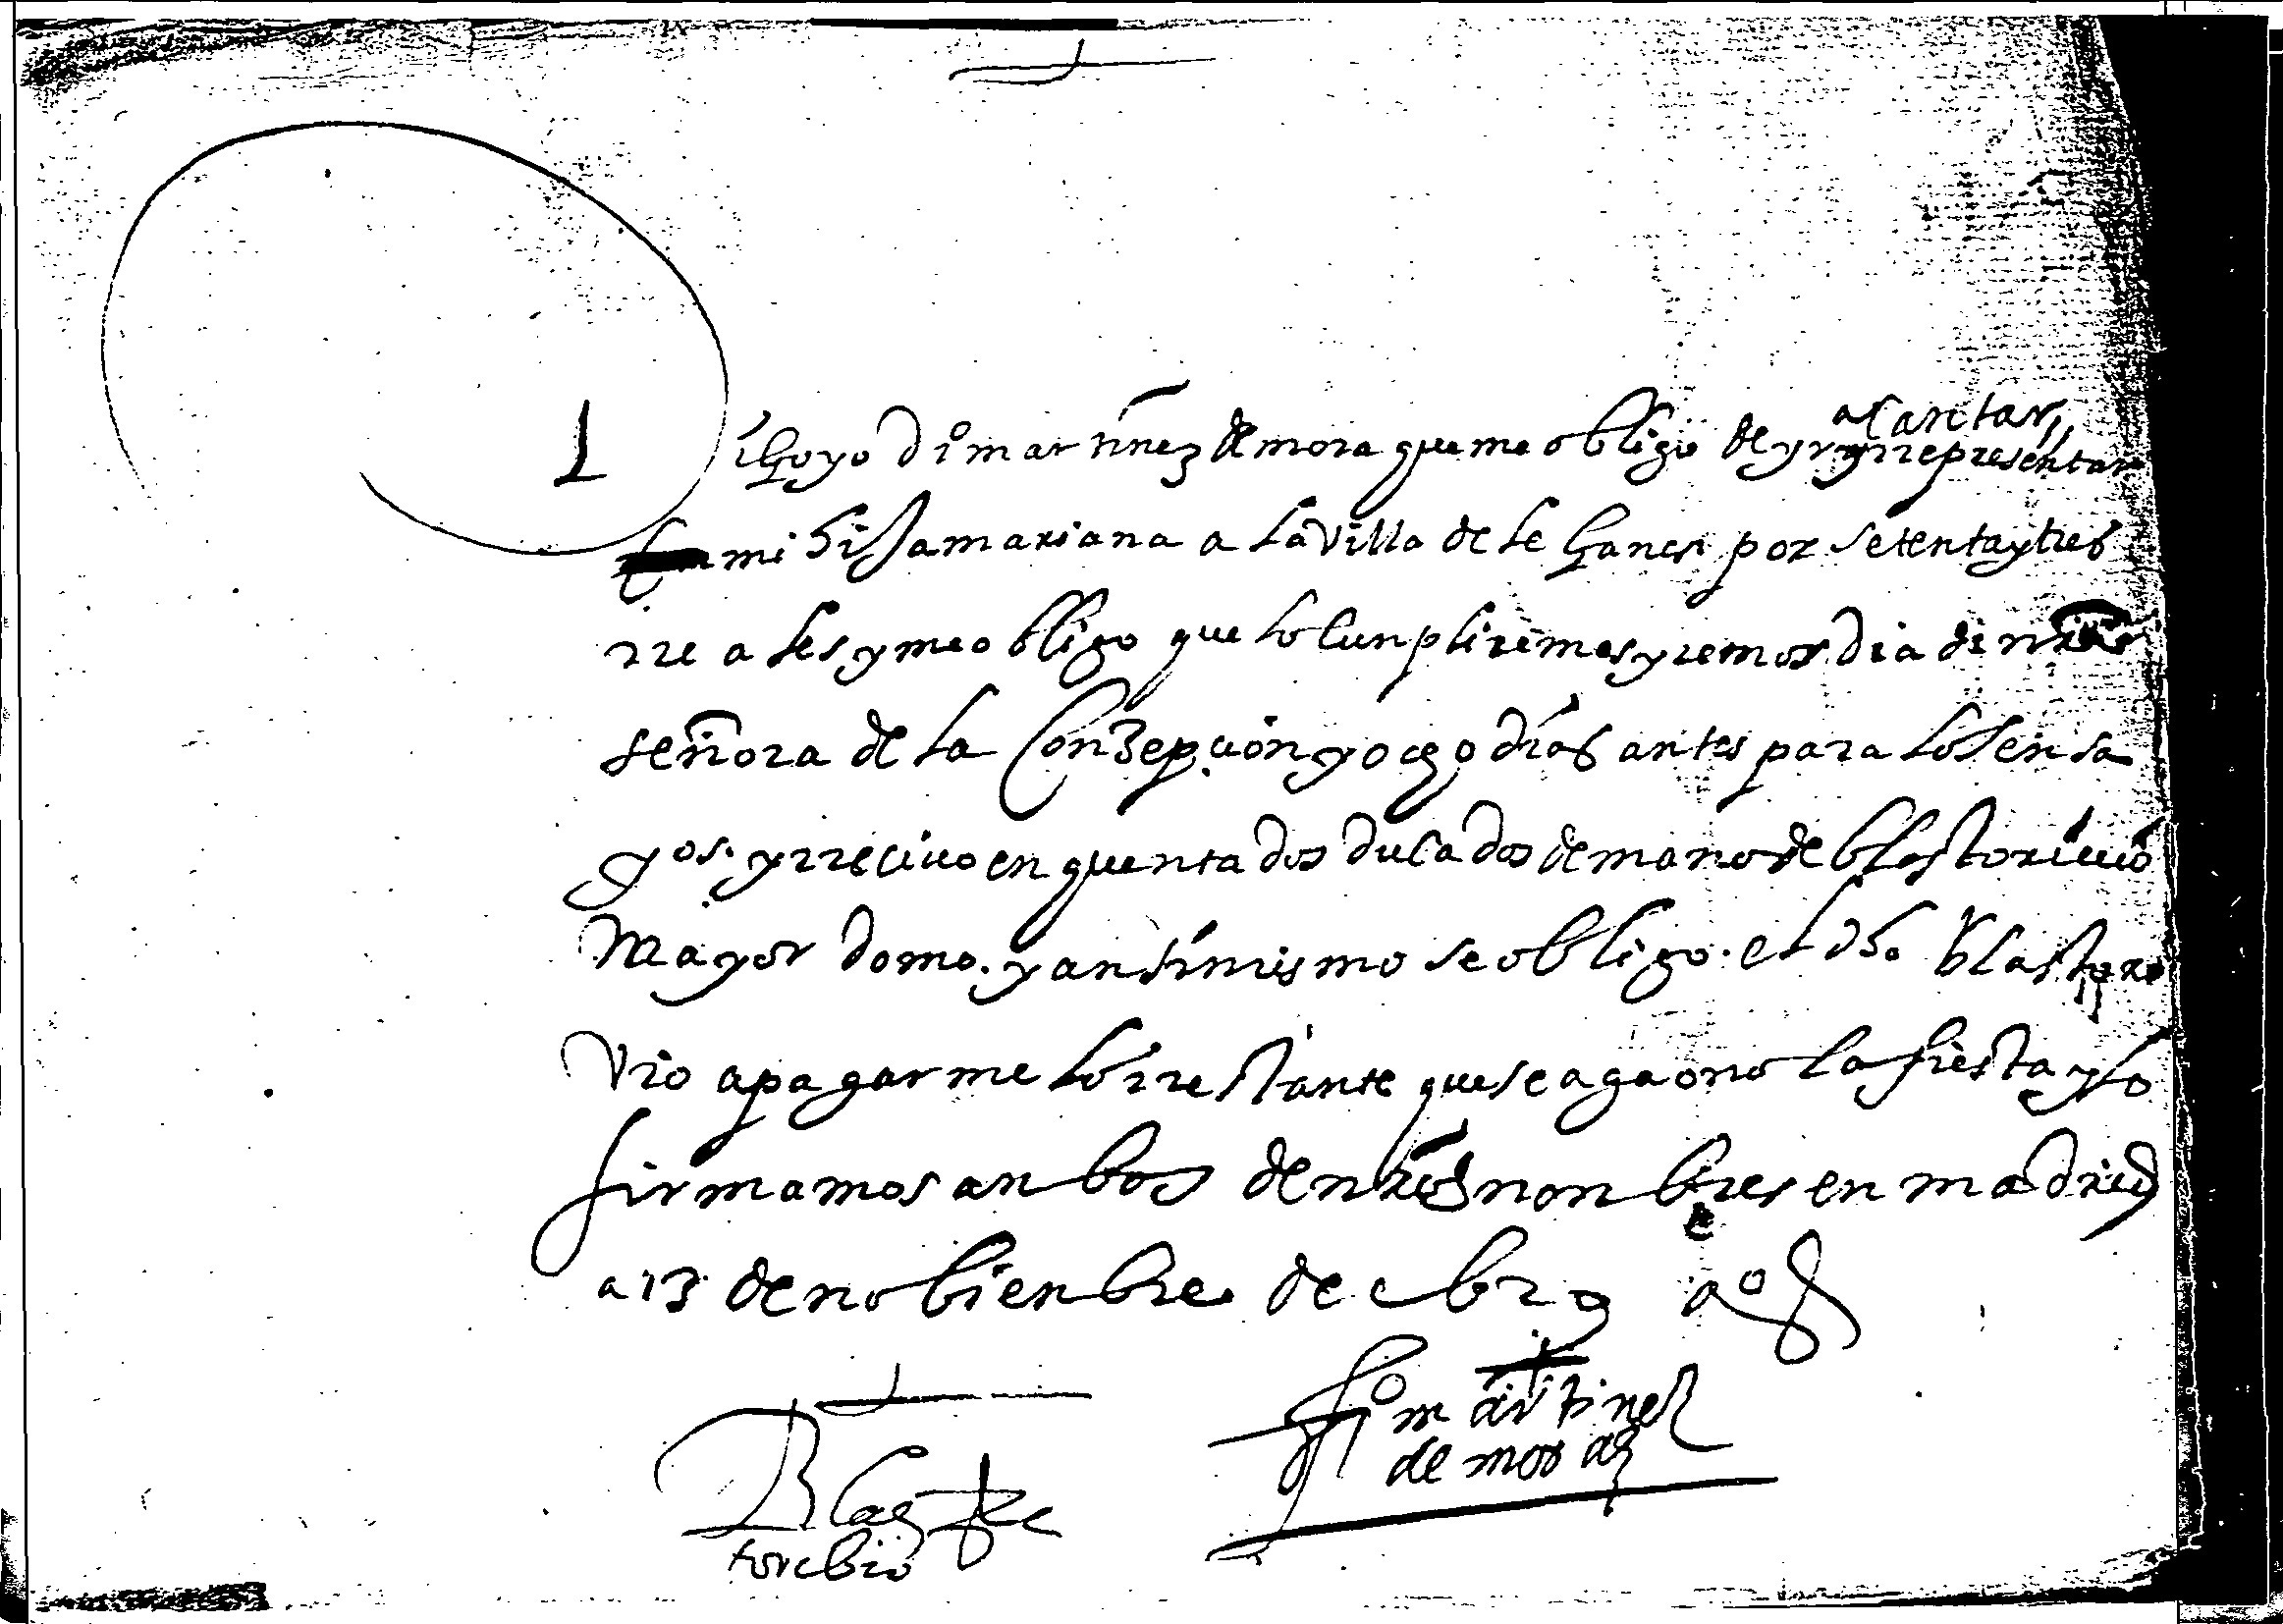 digo yo Dio martinez de mora que me obligo de yr a cantar y rrepresentar
mi hija mariana a la villa de leganes por setenta y tres
rreales y me obligo que lo cunpliremos y remos dia de nra
señora de la Conzepcion y ocho dias antes para los ensa
yos. y rreciuo en quenta dos ducados de mano de blas toriuio
Mayordomo. y ansimismo se obligo. el dho blas tori
vio a pagarme lo rrestante que se aga o no la fiesta y lo
firmamos anbos de nros nonbres en madrid
a 13 de nobienbre de
Blas de
torebio
martinez
de mora